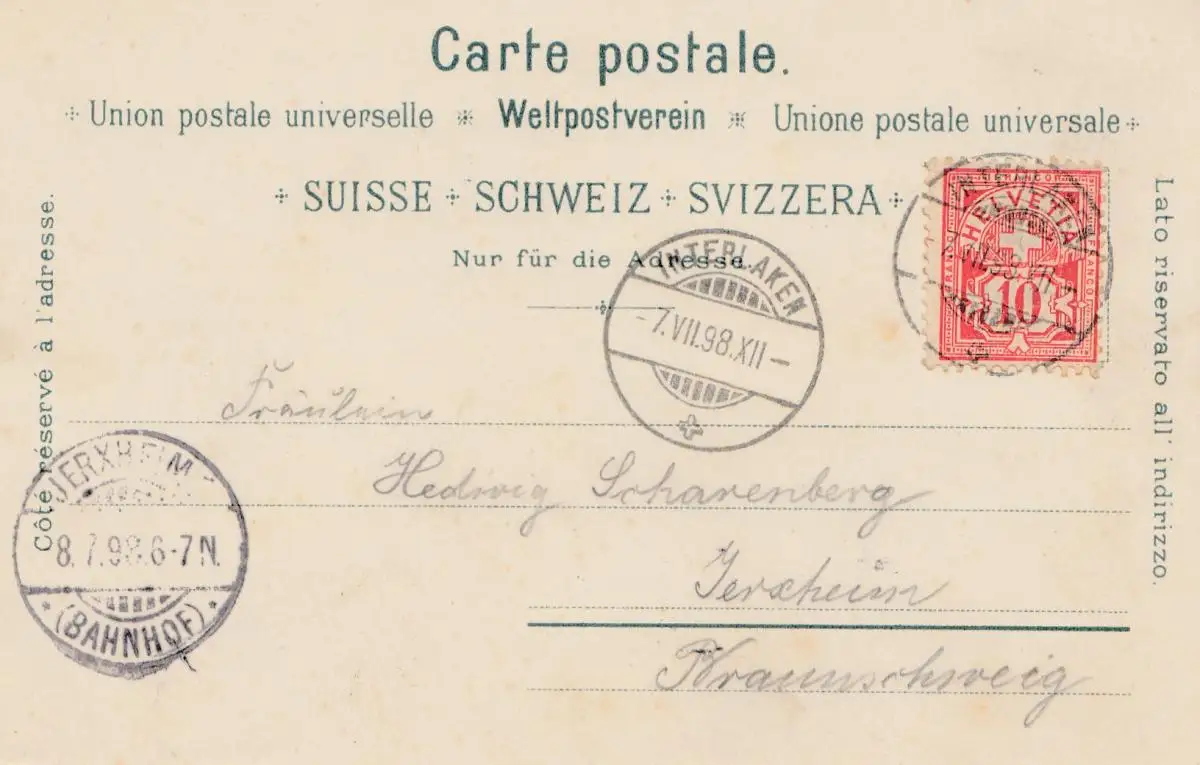 Carte postale.
Union postale universelle Weltpostverein Unione postale universale
SUISSE SCHWEIZ SVIZZERA
Nur für die Adresse.
Côté réservé à l'adresse.
Lato riservato all' indirizzo.
HELVETIA
FRANCO
10
INTERLAKEN
-7.VII.98.XII-
Fräulein
Hedwig Scharenberg
Jerxheim
Braunschweig
JERXHEIM
8.7.98.6-7N.
(BAHNHOF)